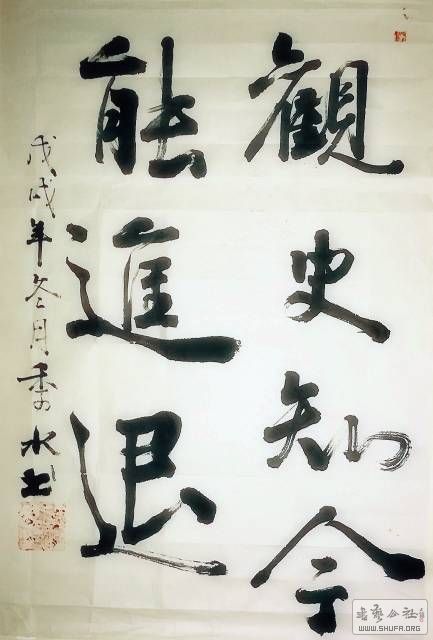 觀史知今
能進退
戊戌年冬月季水书
書藝公社
WWW.SHUFA.ORG